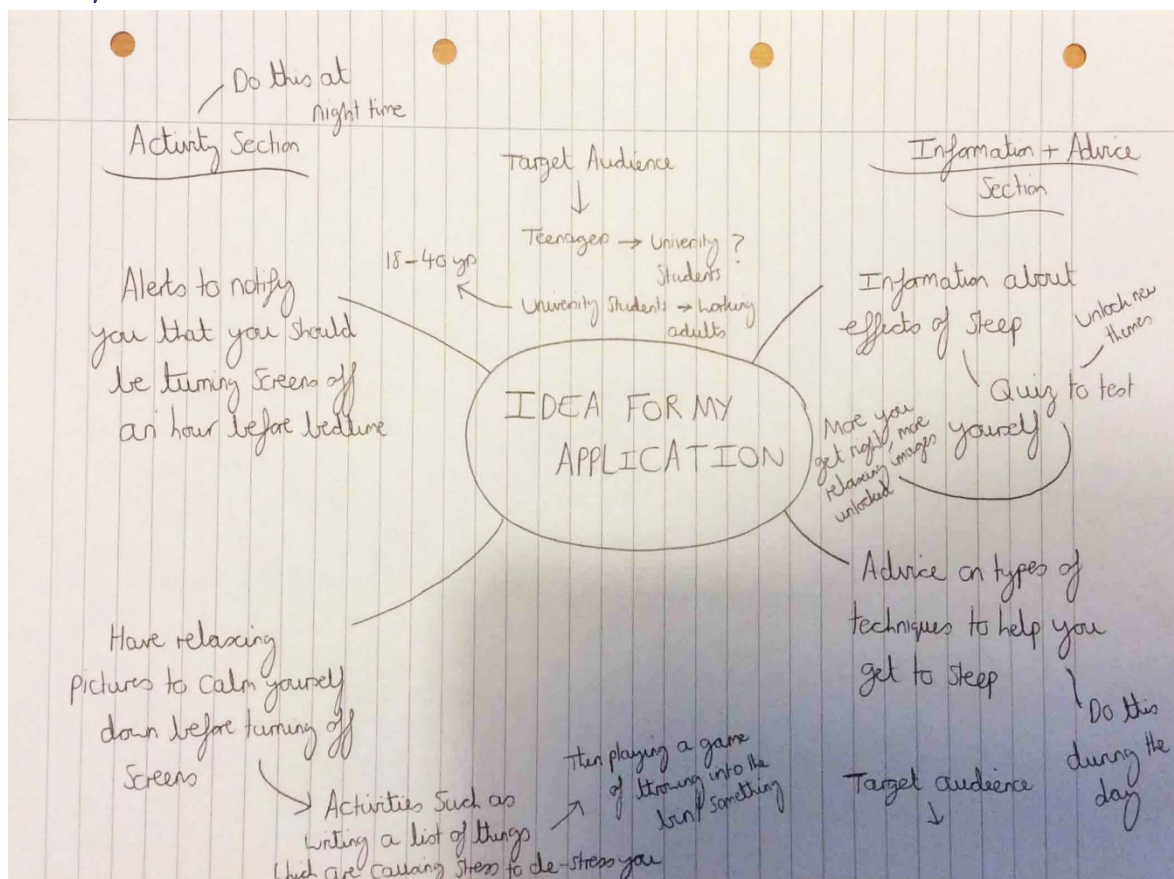 Do this at
night time
Activity Section
Target Audience
Teenagers → University ?
Students
18-40 yrs
University Students → working
adults
Information + Advice
Section
Alerts to notify
you that you should
be turning screens off
an hour before bedtime
IDEA FOR MY
APPLICATION
Information about
effects of sleep
Unlock new
themes
Quiz to test
yourself
More you
get right, more
relaxing images
unlocked
Advice on types of
techniques to help you
get to sleep
Do this
during the
day
Target audience
Have relaxing
pictures to calm yourself
down before turning off
screens
Activities such as
writing a list of things
which are causing stress to de-stress you
Then playing a game
of throwing into the
bin/ something